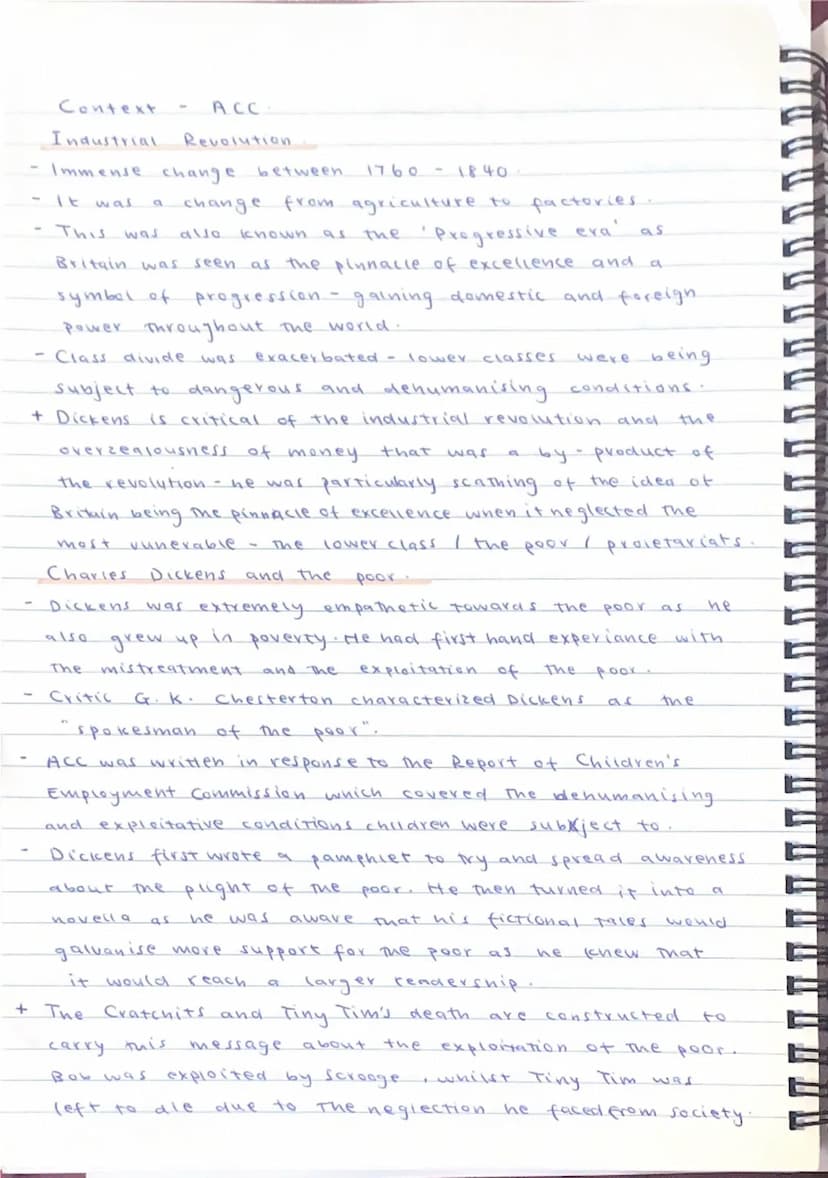 Context - ACC.
Industrial Revolution.
- Immense change between 1760 - 1840.
- It was a change from agriculture to factories.
- This was also known as the 'Progressive era' as
Britain was seen as the pinnacle of excellence and a
symbol of progression - gaining domestic and foreign
power throughout the world.
- Class divide was exacerbated - lower classes were being
subject to dangerous and dehumanising conditions.
+ Dickens is critical of the industrial revolution and the
overzealousness of money that was a by-product of
the revolution - he was particularly scathing of the idea of
Britain being the pinnacle of excellence when it neglected the
most vunerable - the lower class / the poor / proletariats.
Charles Dickens and the poor.
- Dickens was extremely empathetic towards the poor as he
also grew up in poverty. He had first hand experiance with
the mistreatment and the exploitation of the poor.
- Critic G. K. Chesterton characterized Dickens as the
"spokesman of the poor".
- ACC was written in response to the Report of Children's
Employment Commission which covered the dehumanising
and exploitative conditions children were subject to.
- Dickens first wrote a pamphlet to try and spread awareness
about the plight of the poor. He then turned it into a
novella as he was aware that his fictional tales would
galvanise more support for the poor as he knew that
it would reach a larger readership.
+ The Cratchits and Tiny Tim's death are constructed to
carry this message about the exploitation of the poor.
Bob was exploited by Scrooge, whilst Tiny Tim was
left to die due to the neglection he faced from society.